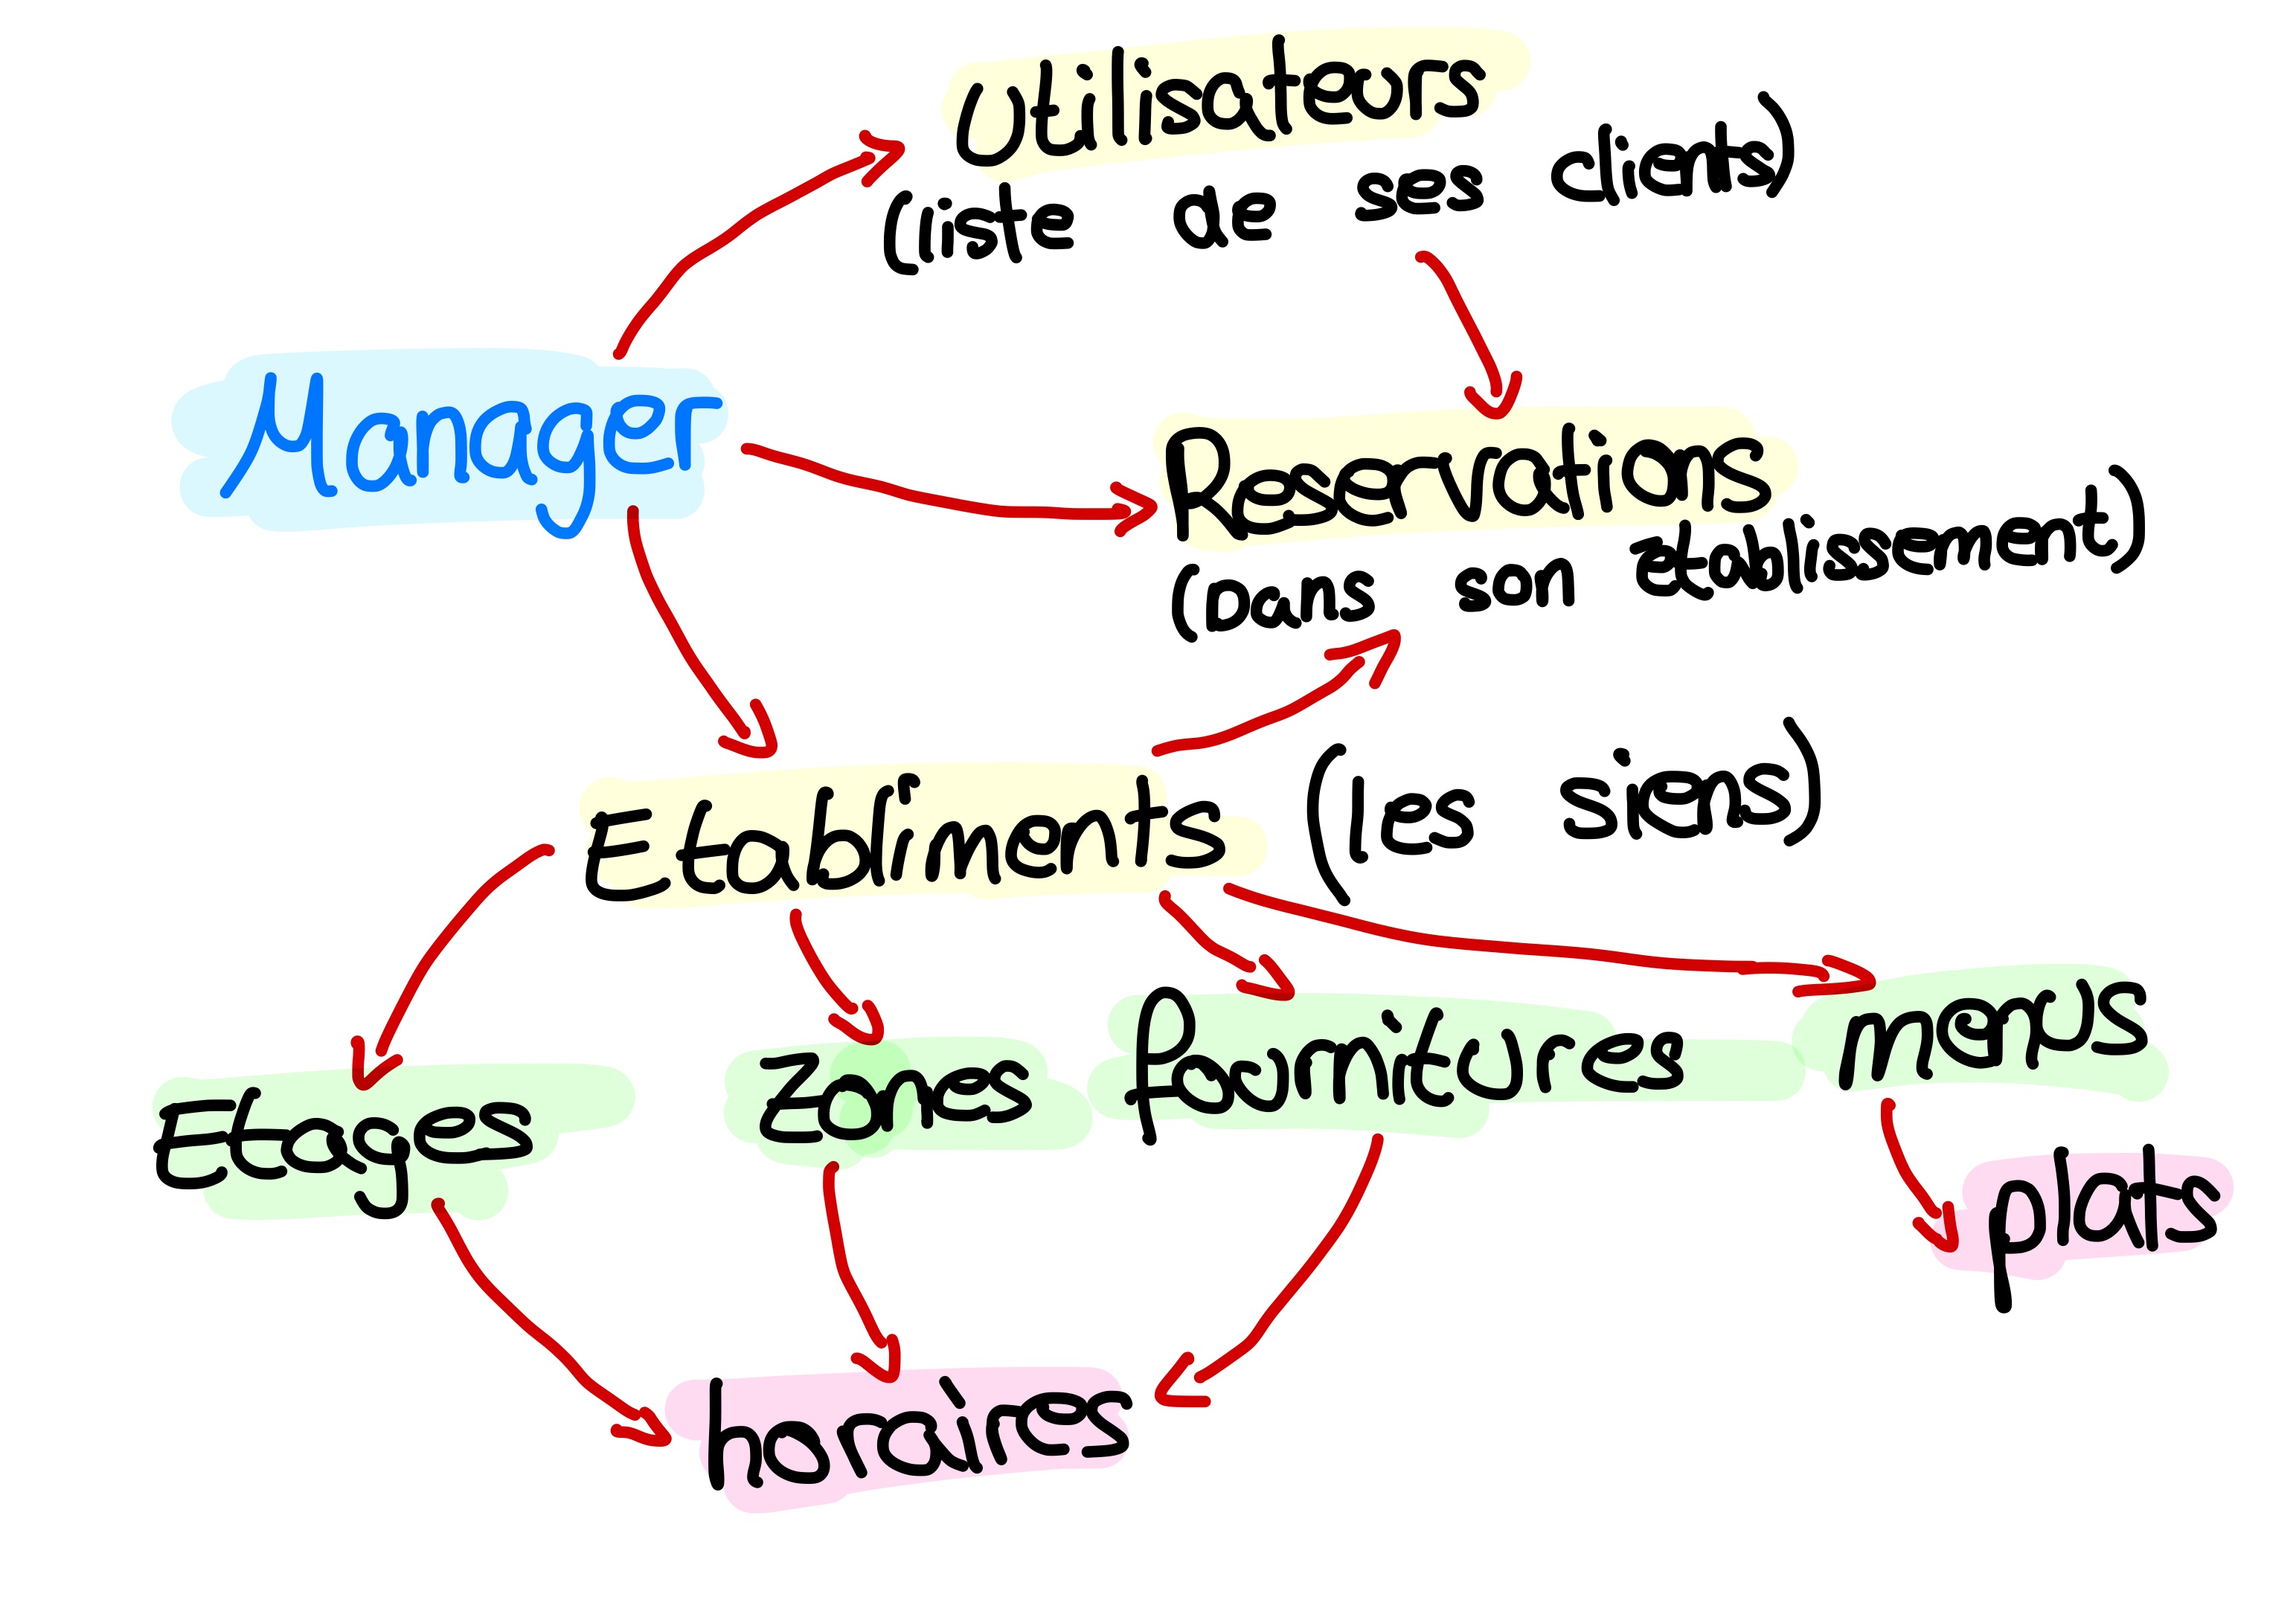 Utilisateurs
(liste de ses clients)
Manager
Reservations
(Dans son établissement)
Etabliments (les siens)
Etages
zones
fournitures
menus
plats
horaires